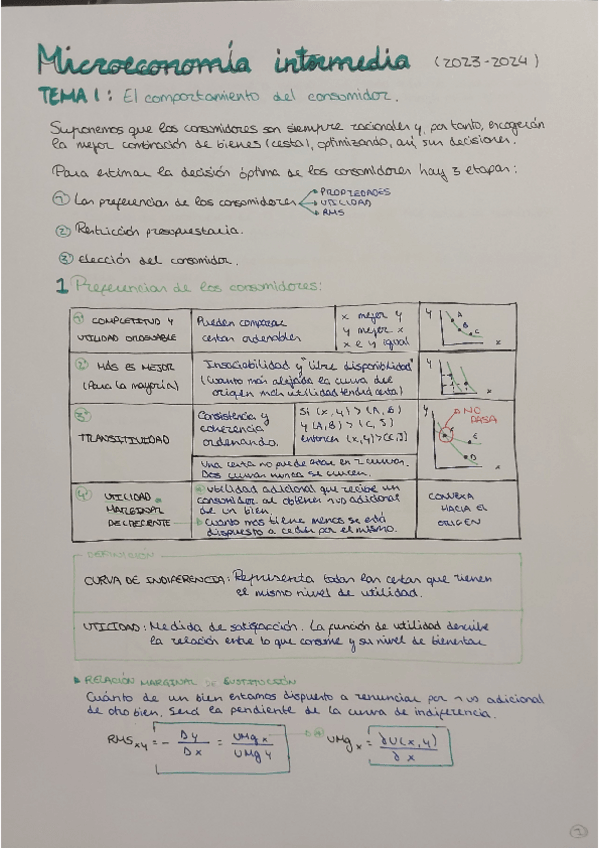 Microeconomía intermedia (2023-2024)
TEMA 1: El comportamiento del consumidor.
Suponemos que los consumidores son siempre racionales y, por tanto, escogerán
la mejor combinación de bienes (cesta), optimizando, así sus decisiones.
Para estimar la decisión óptima de los consumidores hay 3 etapas:
① Las preferencias de los consumidores
PROPIEDADES
UTILIDAD
RMS
② Restricción presupuestaria.
③ elección del consumidor.
1 Preferencias de los consumidores:
① COMPLETITUD Y
UTILIDAD ORDENABLE
Pueden comparar
cestas ordenables
x mejor y
y mejor x
x e y igual
y A B C x
② MÁS ES MEJOR
(Para la mayoría)
Insaciabilidad y "libre disponibilidad"
(Cuanto más alejada la curva del
origen más utilidad tendrá cesta)
y x
③
TRANSITIVIDAD
Consistencia y
coherencia
ordenando.
Si (x,y) > (A,B)
y (A,B) > (C,J)
entonces (x,y) > (C,J)
Una cesta no puede estar en 2 curvas.
Dos curvas nunca se cruzan.
y NO
PASA
x
④ UTILIDAD
MARGINAL
DECRECIENTE
a utilidad adicional que recibe un
consumidor al obtener 1 ud adicional
de un bien.
b cuanto más tiene menos se está
dispuesto a ceder por el mismo.
CONVEXA
HACIA EL
ORIGEN
DEFINICIÓN
CURVA DE INDIFERENCIA: Representa todas las cestas que tienen
el mismo nivel de utilidad.
UTILIDAD: Medida de satisfacción. La función de utilidad describe
la relación entre lo que consume y su nivel de bienestar
RELACIÓN MARGINAL DE SUSTITUCIÓN
Cuánto de un bien estamos dispuesto a renunciar por 1 ud adicional
de otro bien. Será la pendiente de la curva de indiferencia.
RMS xy = - Δy / Δx = UMg x / UMg y
UMg x = ∂U(x,y) / ∂x
1